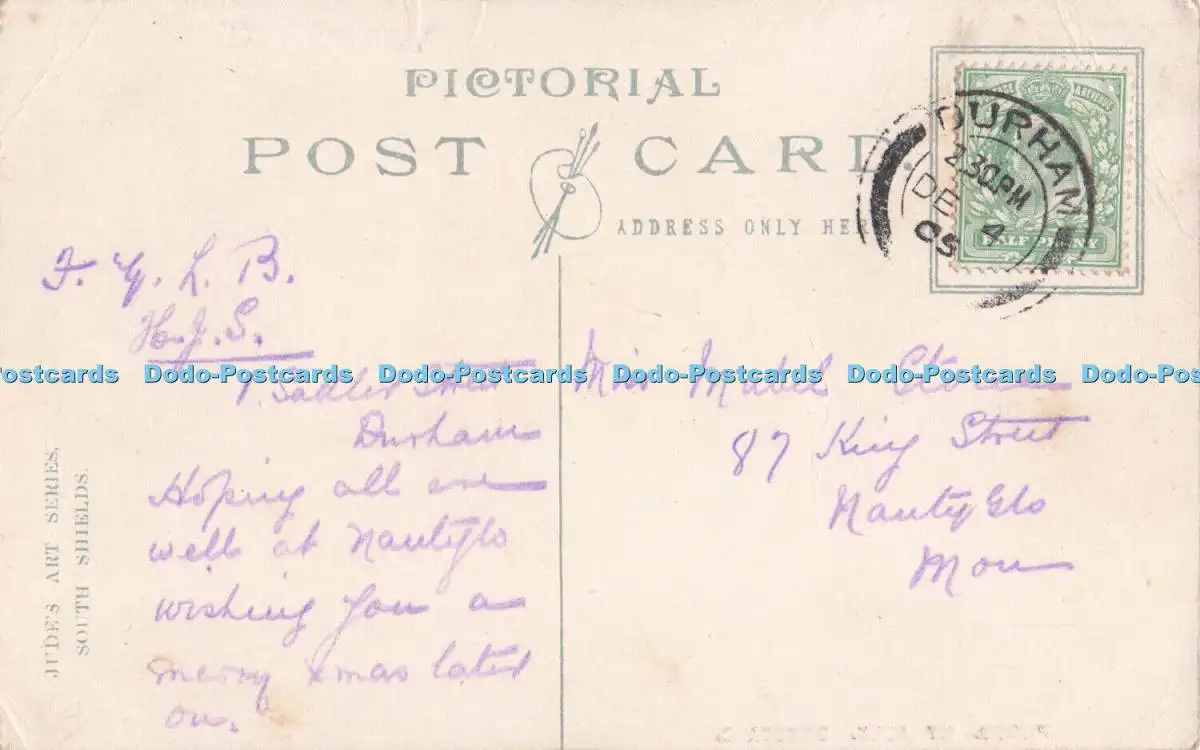 PICTORIAL
POST CARD.
ADDRESS ONLY HERE
DURHAM
2.30PM
DE 4
05
HALF PENNY
H.J.S.
Sadler Street
Durham
Hoping all are
well at Nantyglo
wishing you a
merry Xmas later
on.
Miss Mabel
87 King Street
NantyGlo
Mon
JUDE'S ART SERIES,
SOUTH SHIELDS.
Postcards Dodo-Postcards Dodo-Postcards Dodo-Postcards Dodo-Postcards Dodo-Pos